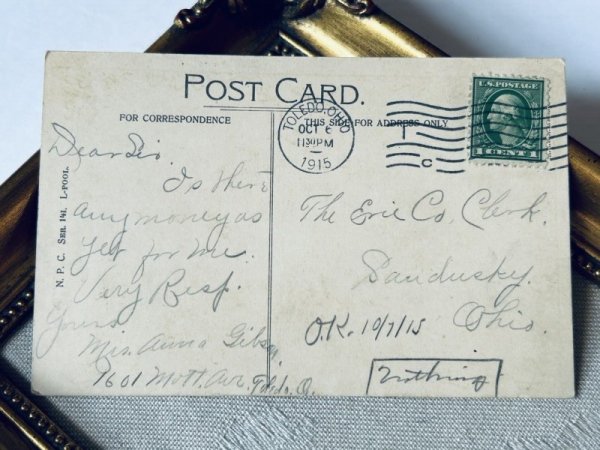 POST CARD.
FOR CORRESPONDENCE
THIS SIDE FOR ADDRESS ONLY
TOLEDO, OHIO
OCT 6
1130PM
1915
T
C
U.S. POSTAGE
1 CENT 1
N. P. C. SER. 141. L-POOL.
Dear Sir
Is there
any money as
yet for me.
Very Resp.
Yours
Mrs. Anna Gibson
1601 Mott Ave. Toledo, O.
The Erie Co, Clerk.
Sandusky
Ohio.
O.K. 10/7/15
nothing